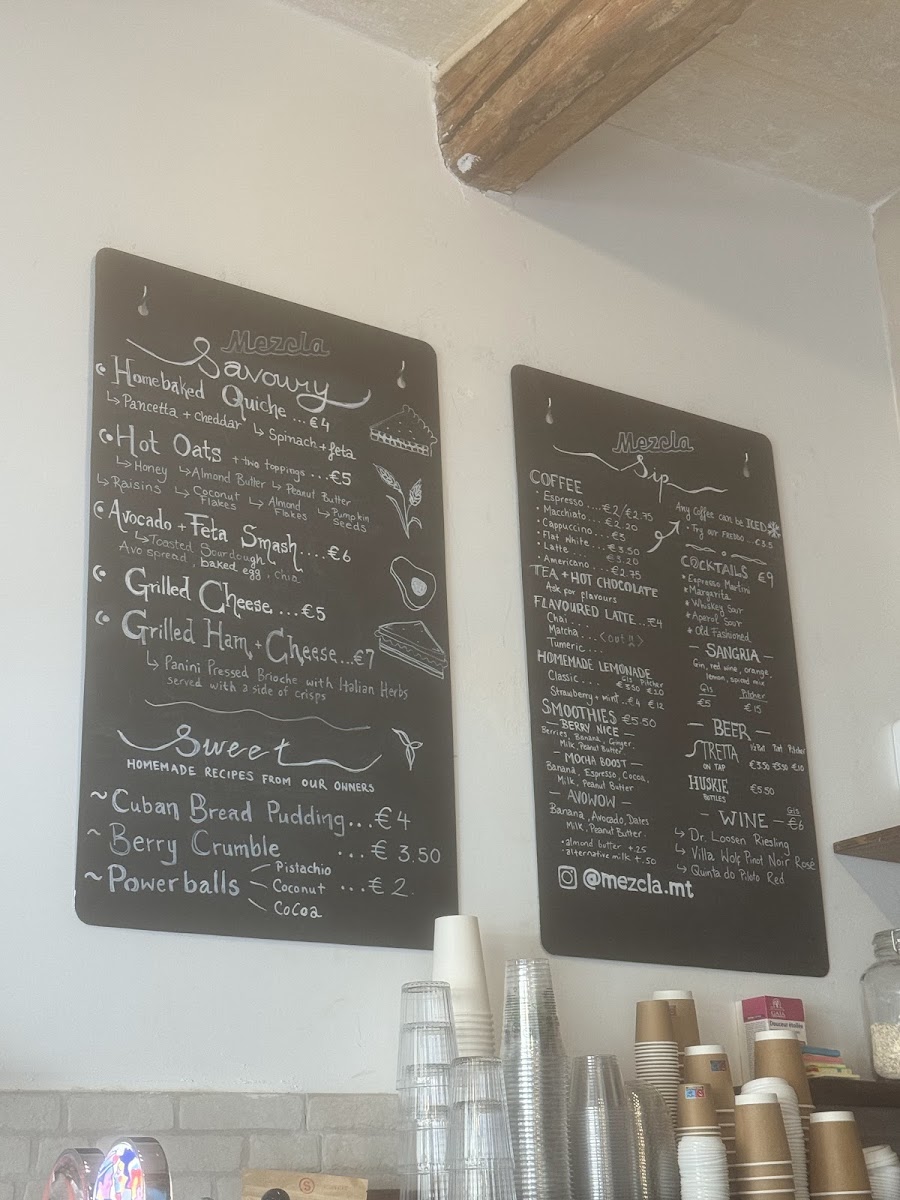 Mezcla
Savoury
Homebaked Quiche ... €4
↳ Pancetta + cheddar ↳ Spinach + feta
Hot Oats + two toppings ... €5
↳ Honey ↳ Almond Butter ↳ Peanut Butter
↳ Raisins ↳ Coconut Flakes ↳ Almond Flakes ↳ Pumpkin Seeds
Avocado + Feta Smash .... €6
↳ Toasted Sourdough
Avo spread, baked egg, chia
Grilled Cheese .... €5
Grilled Ham + Cheese... €7
↳ Panini Pressed Brioche with Italian Herbs
served with a side of crisps
Sweet
HOMEMADE RECIPES FROM OUR OWNERS
~Cuban Bread Pudding... €4
~Berry Crumble ... € 3.50
~Powerballs ... € 2
Pistachio
Coconut
CoCoa
Mezcla
Sip
COFFEE
• Espresso .... €2/€2.75
• Macchiato ... €2.20
• Cappuccino ... €3
• Flat White ... €3.50
• Latte ... €3.20
• Americano ... €2.75
TEA + HOT CHOCOLATE
Ask for flavours
FLAVOURED LATTE ... €4
Chai ...
Matcha ...
Tumeric ...
HOMEMADE LEMONADE
Gls Pitcher
Classic .... €3.50 €10
Strawberry + mint .. €4 €12
SMOOTHIES €5.50
— BERRY NICE —
Berries, Banana, Ginger,
Milk, Peanut Butter
— MOCHA BOOST —
Banana, Espresso, Cocoa,
Milk, Peanut Butter
— AVOWOW —
Banana, Avocado, Dates
Milk, Peanut Butter
• almond butter +.25
• alternative milk +.50
@mezcla.mt
Any Coffee can be ICED
• Try our FREDDO ... €3.5
COCKTAILS €9
* Espresso Martini
* Margarita
* Whiskey Sour
* Aperol Sour
* Old Fashioned
— SANGRIA —
Gin, red wine, orange,
lemon, spiced mix
Gls Pitcher
€5 €15
— BEER —
STRETTA Pint Pitcher
ON TAP €10
HUSKIE €5.50
BOTTLES
— WINE — Gls €6
↳ Dr. Loosen Riesling
↳ Villa Wolf Pinot Noir Rosé
↳ Quinta do Piloto Red